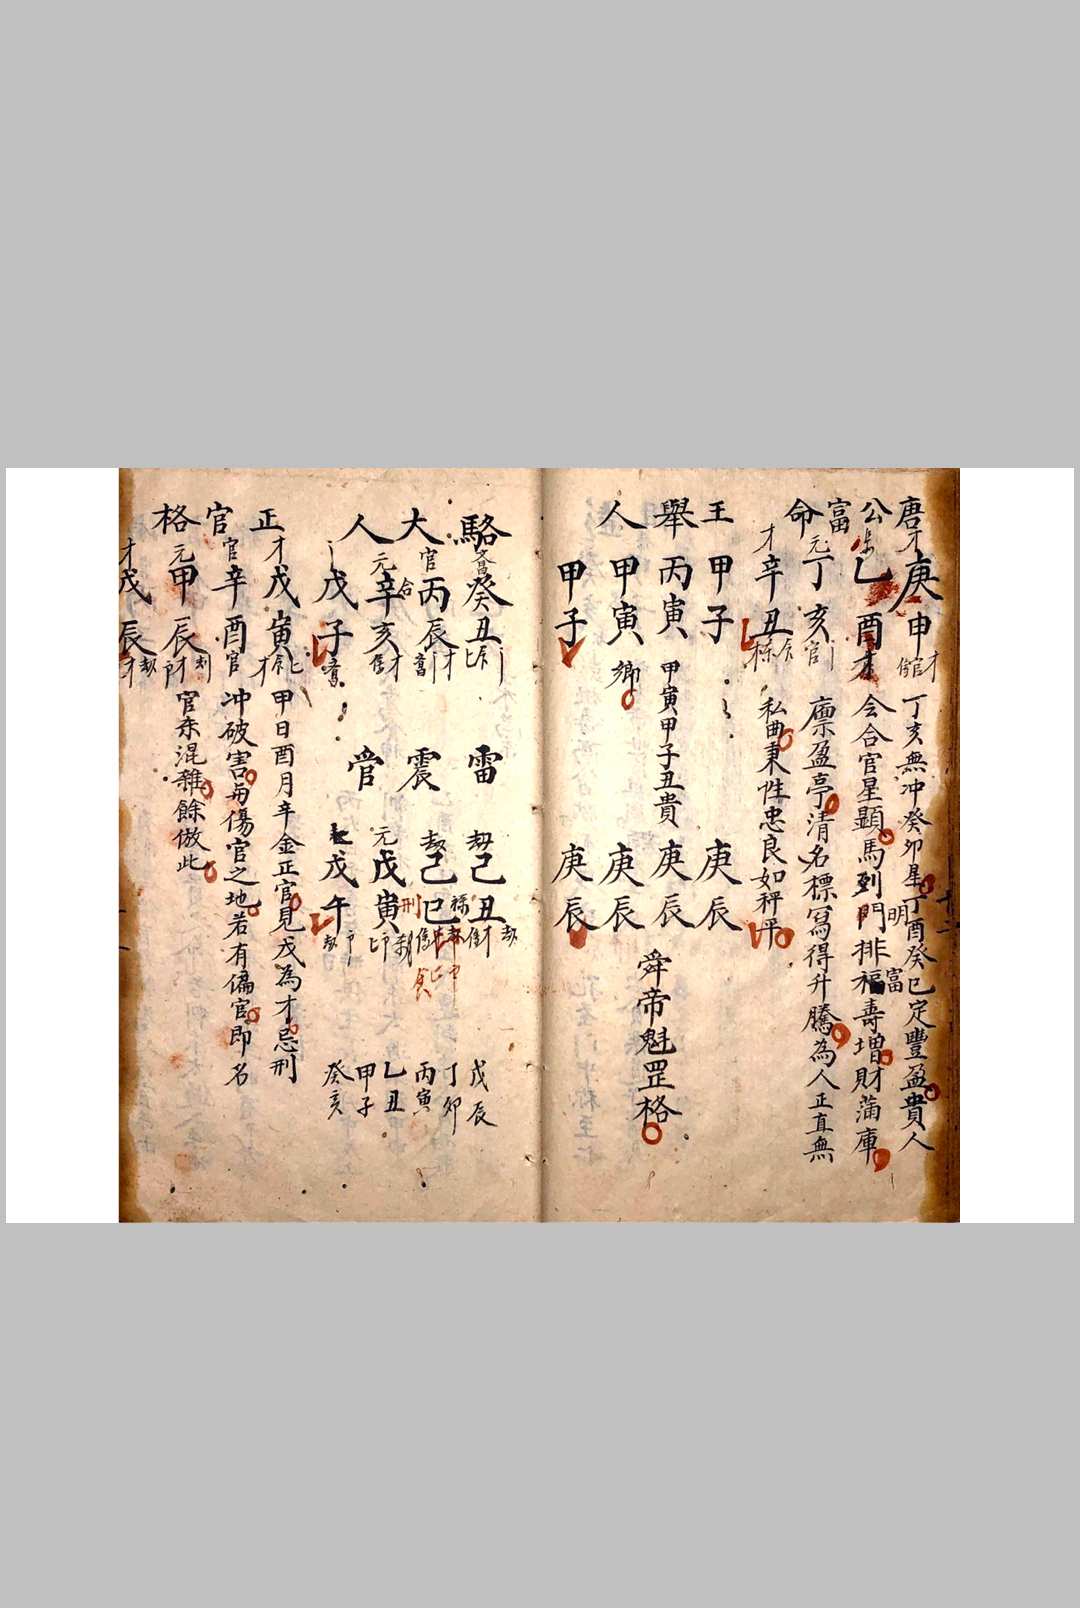 唐公富命
才庚申才
乙酉
元丁亥官
才辛丑
丁亥無冲癸卯星丁酉癸巳定豐盈貴人
会合官星顯馬列門排福壽增財滿庫
明富
廪盈亭清名標寫得升騰為人正直無
私曲秉性忠良如秤平
王舉人
甲子
丙寅
甲寅
甲子
甲寅甲子丑貴
鄉
庚辰
庚辰
庚辰
庚辰
舜帝魁罡格
駱大人
癸丑
官丙辰
元辛亥才
戊子
合
雷震管
劫己丑劫
劫己巳
元戊寅
戊午
刑
食
戊辰
丁卯
丙寅
乙丑
甲子
癸亥
正官格
才戊寅
官辛酉官
元甲辰
才戊辰
甲日酉月辛金正官見戊為才忌刑
冲破害与傷官之地若有偏官即名
官杀混雜餘倣此